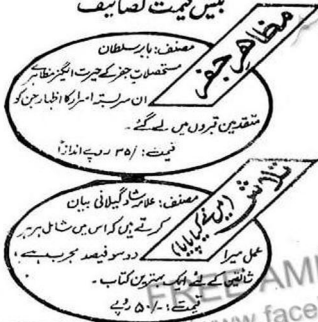 بیش قیمت تصانیف
مظاہر جفر
مصنف: بابر سلطان
مستحصلات جفر کے حیرت انگیز مظاہرے
ان سربستہ اسرار کا اظہار جن کو
متقدمین قبروں میں لے گئے۔
قیمت: /۳۵ روپے اندازاً
تلاش (میں نے کیا پایا)
مصنف: علامہ شاد گیلانی بیان
کرتے ہیں کہ اس میں شامل ہر ہر
عمل میرا دو سو فیصد مجرب ہے؛
شائقین کے لئے ایک بہترین کتاب۔
قیمت: /۵۰ روپے
FREE AM
www.face